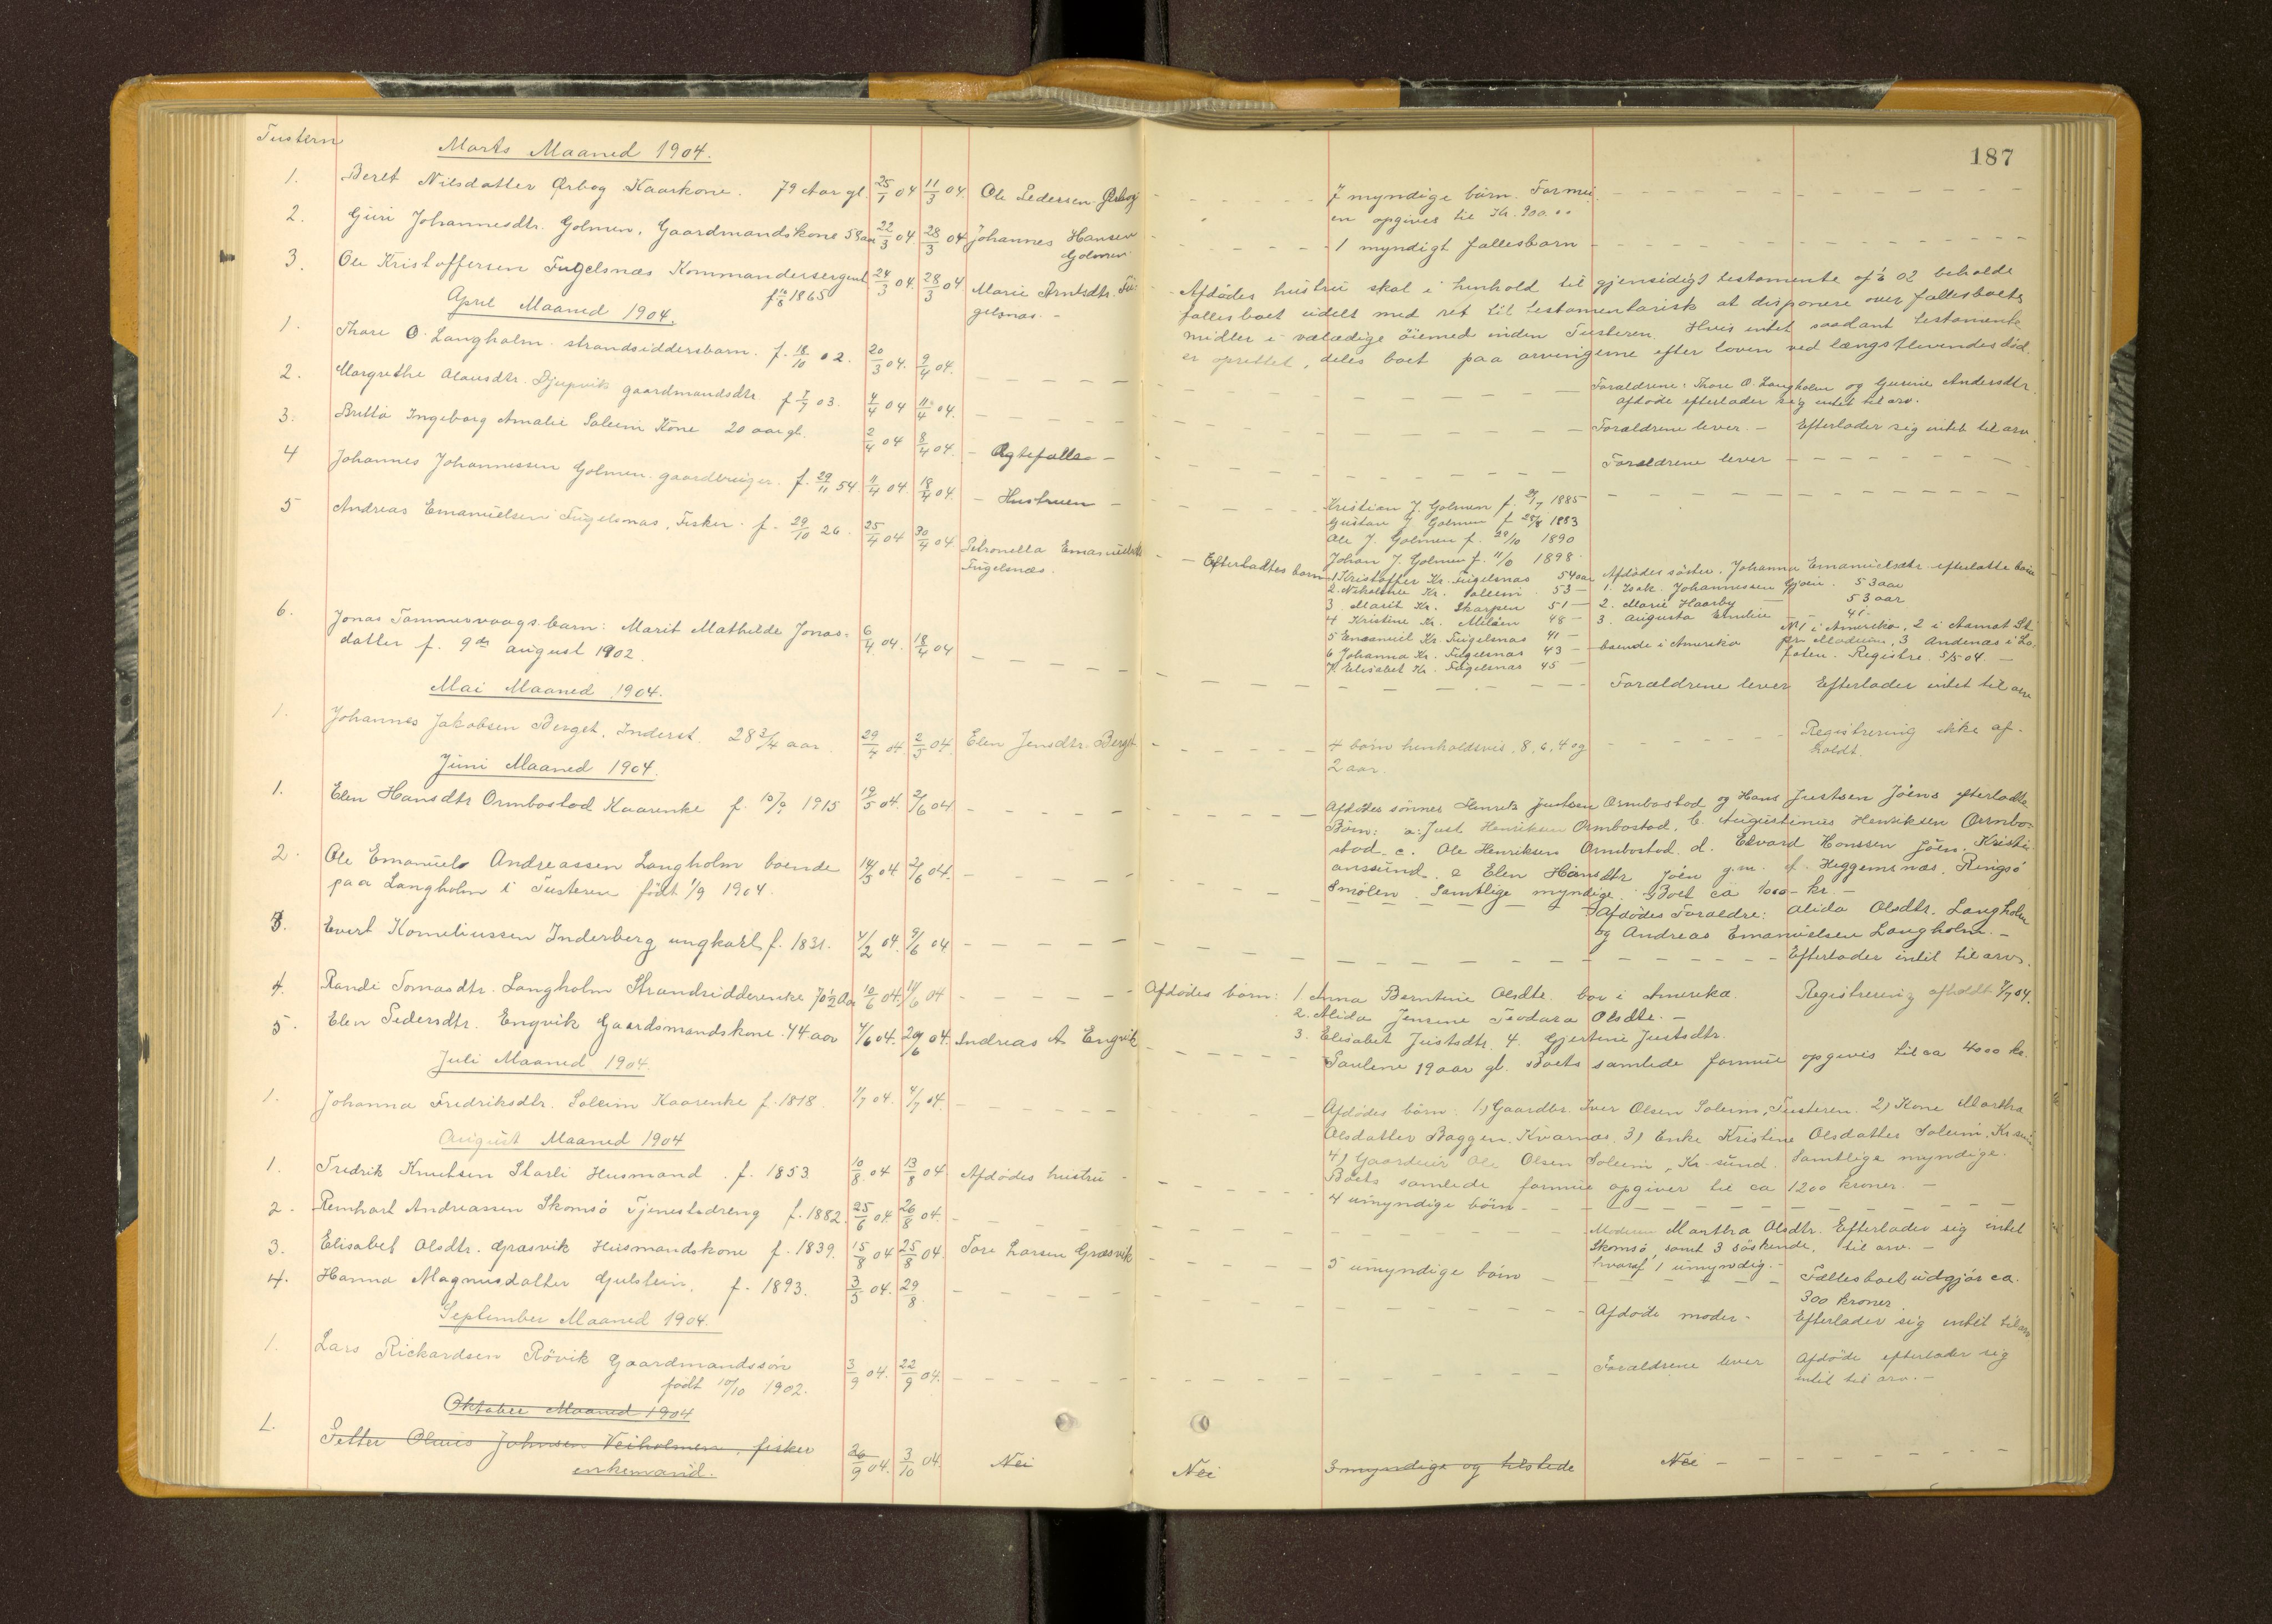 187
Tustern
Marts Maaned 1904.
1. Beret Nilsdatter Ørbog Kaarkone. 79 Aar gl. 25/1 04 11/3 04. Ole Pedersen Ørbog - - - - - 7 myndige børn. Formu- - - - - - -
en opgives til Kr. 900.00
2. Guri Johannesdtr. Golmen, Gaardmandskone 58 aar 22/3 04. 28/3 04 Johannes Hansen - - - - - 1 myndigt fællesbarn - - - - - -
Golmen
3. Ole Kristoffersen Fugelsnæs Kommandersergent 24/3 04. 28/3 04 Marie Arntsdtr. Fu-
f 10/8 1865 gelsnæs. -
Afdødes hustru skal i henhold til gjensidigt testamente af 1/6 02 beholde
fællesboet udelt med ret til testamentarisk at disponere over fællesboets
midler i veldædige øiemed inden Tusteren. Hvis intet saadant testamente
er oprettet, deles boet paa arvingerne efter loven ved længstlevendes død.
April Maaned 1904.
1. Thore O. Langholm strandsiddersbarn. f. 18/10 02. 20/3 04. 9/4 04. - - - - Forældrene: Thore O. Langholm og Gurine Andersdtr.
afdøde efterlader sig intet til arv.
2. Margrethe Olausdtr. Djupvik gaardmandsdtr f 7/7 03. 4/4 04 11/4 04. - - - - Forældrene lever. - Efterlader sig intet til arv
3. Britta Ingeborg Amalie Soleim Kone 20 aar gl. 2/4 04 8/4 04. - Ægtefælle - - - - Forældrene lever - - - - -
4 Johannes Johannessen Golmen. gaardbruger. f. 29/11 54. 11/4 04. 18/4 04. - Hustruen - - - - Kristian J. Golmen f. 29/7 1885
Gustav J. Golmen f 28/8 1883
Ole J. Golmen f. 29/10 1890
Johan J. Golmen f. 11/6 1898
5 Andreas Emanuelsen Fugelsnæs, Fisker. f. 29/10 26. 25/4 04 30/4 04 Petronella Emanuelsdtr
Fugelsnæs.
- Efterladtes børn 1 Kristoffer Kr. Fugelsnæs 54 aar Afdødes søster. Johanna Emanuelsdtr. efterlatte børn
2. Nikoline Kr. Soleim 53 - 1. Isak Johannessen Gjøen. 53 aar
3. Marit Kr. Skarpen 51 - 2. Marie Haarby 53 aar
4 Kristine Kr. Milaen 48 - 3. Augusta Emilie 41 -
5 Emanuel Kr. Fugelsnæs 41 - N1 i Amerika, 2 i Aamot St.
6 Johanna Kr. Fugelsnæs 43 - boende i Amerika pr. Modum, 3 Andenæs i Lo-
7. Elisabet Kr. Fugelsnæs 45 - foten. Registre. 5/5 04. -
6. Jonas Tommesvaags barn: Marit Mathilde Jonas- 6/4 04. 18/4 04 - - - - Forældrene lever Efterlader intet til arv
datter f. 9de august 1902.
Mai Maaned 1904.
1. Johannes Jakobsen Berget, Inderst. 28 3/4 aar. 29/4 04. 2/5 04. Elen Jensdtr. Berget - - - - 4 børn henholdsvis, 8, 6, 4 og - - - - Registrering ikke af-
2 aar. holdt.
Juni Maaned 1904.
1. Elen Hansdtr Ormbostad Kaarenke f. 10/9 1915 19/5 04. 2/6 04 - - - - Afdødes sønner Henrik Justsen Ormbostad og Hans Justsen Jøens efterladte
Børn: a: Just Henriksen Ormbostad, b. Augustinus Henriksen Ormbo-
stad. c. Ole Henriksen Ormbostad. d. Edvard Hanssen Jøen. Kristi-
anssund. e Elen Hansdtr Jøen g.m. d. Heggemsnæs. Ringsø
Smølen. Samtlige myndige. Boet ca 1000- kr. -
2. Ole Emanuels Andreassen Langholm boende 14/5 04 2/6 04. - - - - Afdødes Forældre: Alida Olsdtr. Langholm
paa Langholm i Tusteren født 1/9 1904. og Andreas Emanuelsen Langholm. -
3. Evert Korneliussen Inderberg ungkarl, f. 1831. 4/2 04. 9/6 04 - - - - - Efterlader intet til arv.
4. Randi Tomasdtr. Langholm Strandsidderenke 70 1/2 Aar 10/6 04. 14/6 04 - - - - Afdødes børn: 1. Anna Berntine Olsdtr. bor i Amerika. Registrering afholdt 2/7 04.
2. Alida Jensine Teodara Olsdtr. -
3. Elisabet Justsdtr. 4. Gjertine Justsdtr.
5. Elen Pedersdtr. Engvik Gaardsmandskone. 44 aar 4/6 04. 29/6 04. Andreas A Engvik - - - - Paulene 19 aar gl. Boets samlede formue opgives til ca 4000 kr.
Juli Maaned 1904.
1. Johanna Fredriksdtr. Soleim Kaarenke f. 1818. 1/7 04. 4/7 04. - - - - Afdødes børn: 1.) Gaardbr. Iver Olsen Soleim, Tusteren. 2) Kone Martha
Olsdatter Baggen. Kvarnæs. 3) Enke Kristine Olsdatter Soleim, Kr. sund
4) Gaardeier Ole Olsen Soleim, Kr. sund. Samtlige myndige.
Boets samlede formue opgives til ca 1200 kroner. -
August Maaned 1904
1. Fredrik Knutsen Starli Husmand. f. 1853. 10/8 04 13/8 04 Afdødes hustru - - - - 4 umyndige børn - - - - -
2. Reinhart Andreassen Skomsø Tjenestedreng f. 1882. 25/6 04. 26/8 04. - - - - Moderen Martha Olsdtr. Efterlader sig intet
Skomsø, samt 3 søskende, til arv. -
hvoraf 1 umyndig. -
3. Elisabet Olsdtr. Græsvik Husmandskone f. 1839. 15/8 04 25/8 04. Tore Larsen Græsvik - - - - 5 umyndige børn - - - - Fællesboet udgjør ca.
300 kroner.
4. Hanna Magnusdatter Gulstein, f. 1893. 3/5 04. 29/8. - - - - Afdøde moder - Efterlader sig intet til arv
September Maaned 1904.
1. Lars Rickardsen Røvik Gaardmandssøn 3/9 04. 22/9 04. - - - - Forældrene lever Afdøde efterlader sig
født 10/10 1902. intet til arv. -
Oktober Maaned 1904
1. Petter Olaus Johnsen Veiholmen, fisker 26/9 04. 3/10 04. Nei Nei 3 myndige og tilstede Nei - - - - -
enkemand.